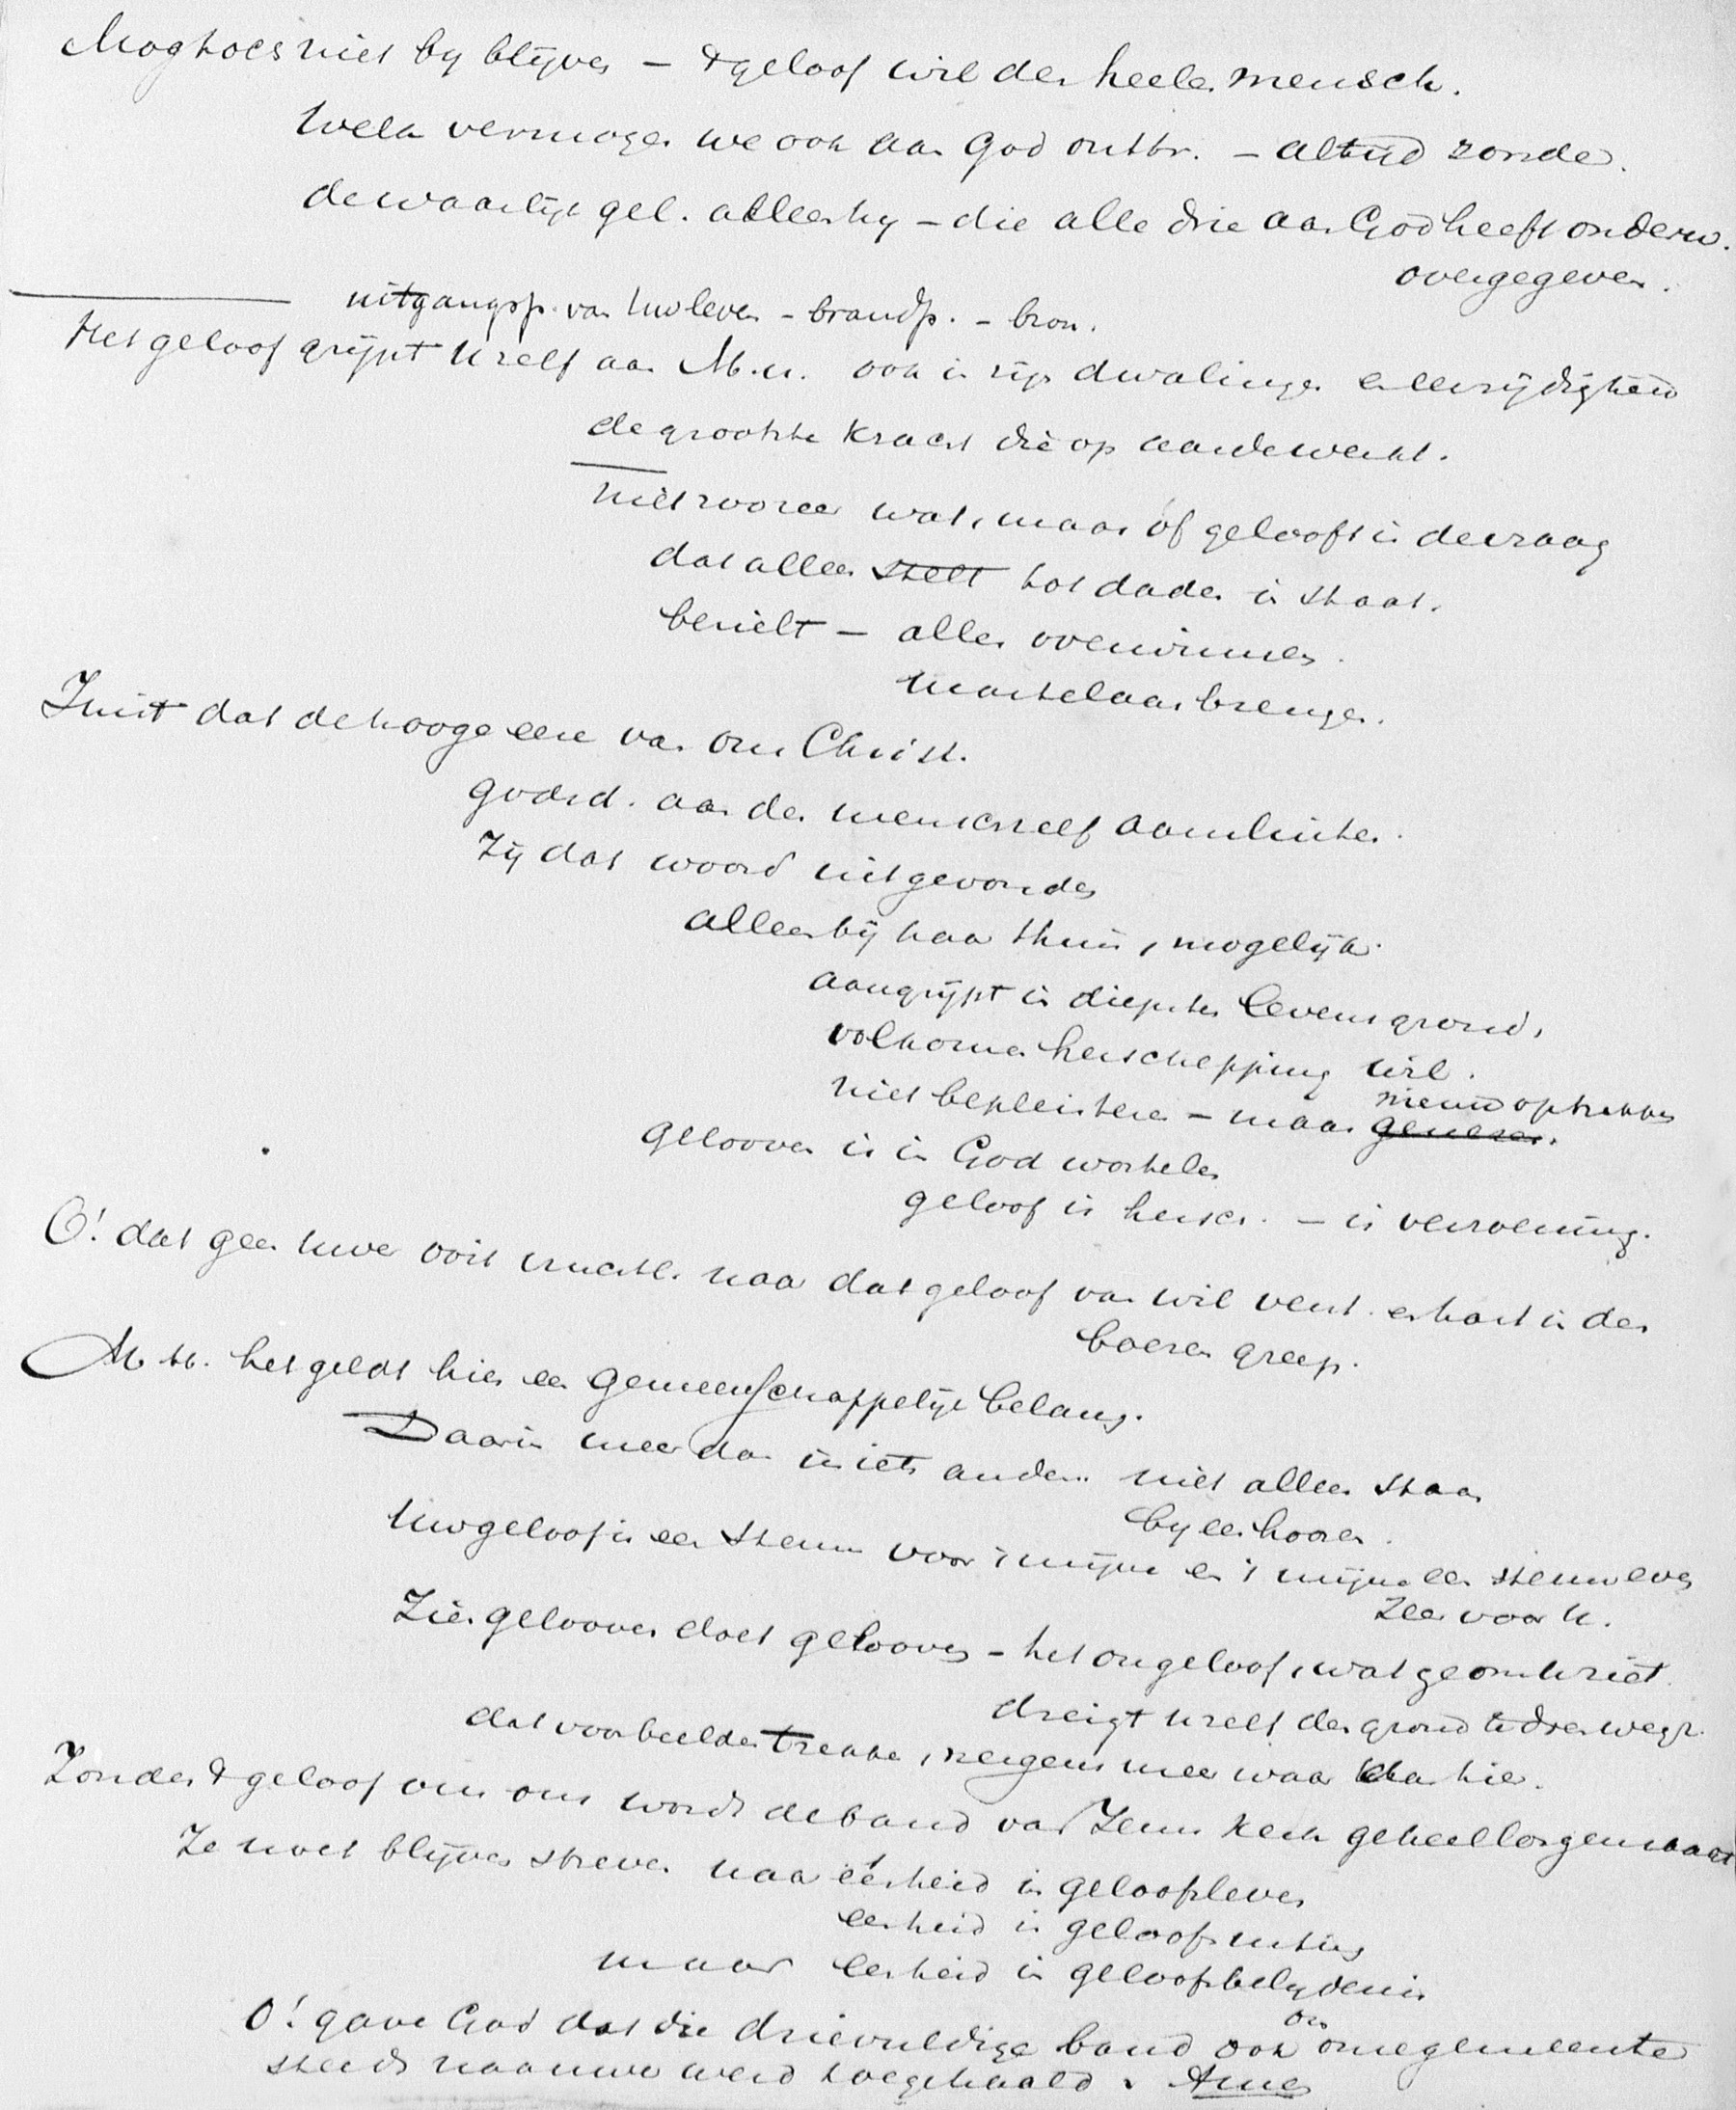 Mag toes niet by blijven — 't geloof wil den heelen mensch.
Welk vermogen we ook aan God onttr. — altijd zonde.
de waarlijk gel. alleen hy — die alle drie aan God heeft onderw.
overgegeven.
uitgangsp. van Uw leven — brandp. — bron.
Het geloof grijpt U zelf aan M.u. ook in zijn dwalingen eenzijdigheid
de grootste kracht die op aarde werkt.
niet zoozeer wat, maar óf gelooft is de vraag
dat alleen stelt tot daden in staat.
bezielt — alles overwinnen.
martelaar brengen.
Juist dat de hooge eere van onze Christ.
godsd. aan den mensch zelf aansluiten.
Zij dat woord uitgevonden
alleen bij haar thuis, mogelijk.
aangrijpt in diepsten levensgrond,
volkomen herschepping wil.
nieuw optrekken
niet bepleisteren — maar genezen.
gelooven is in God wortelen
geloof is hersch. — is verzoening.
O! dat geen Uwer ooit trachte naar dat geloof van wil verst. en hart in den
boezem greep.
M. H. het geldt hier een gemeenschappelijk belang.
Daarin meer dan in iets anders niet alleen staan
by een hooren.
Uw geloof is een steun voor 't mijne en 't mijne een steun even
zeer voor U.
Zien gelooven doet gelooven — het ongeloof, wat ge om U ziet
dreigt U zelf den grond te doen wegz.
dat voorbeelden trekken, nergens meer waar dan hier.
Zonder 't geloof om ons wordt de band van Jezus kerk geheel losgemaakt
Ze moet blijven streven naar eénheid in geloofsleven
eenheid in geloofsuiting
maar eenheid in geloofsbelydenis
O! gave God dat die drievuldige band ook om onze gemeente
steeds naauwer werd toegehaald. Amen